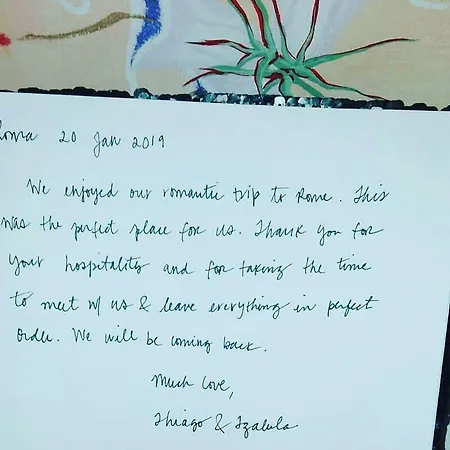 Roma 20 Jan 2019
We enjoyed our romantic trip to Rome. This
was the perfect place for us. Thank you for
your hospitality and for taking the time
to meet w/ us & leave everything in perfect
order. We will be coming back.
Much love,
Thiago &